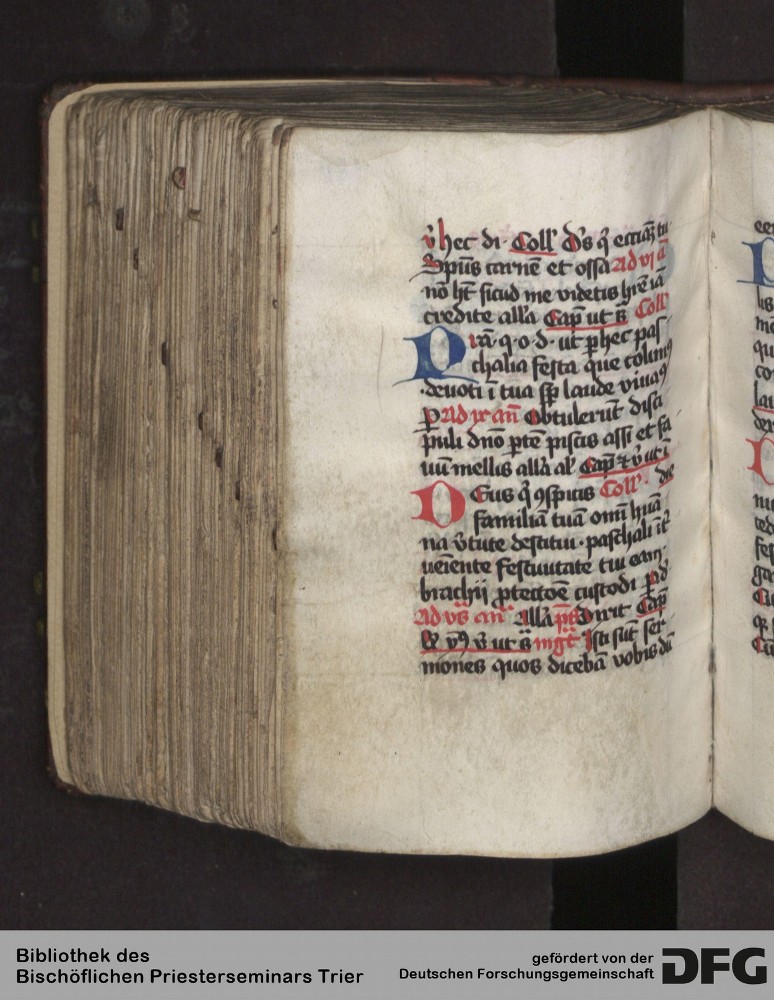 v̄ hec di· Coll' d̄s q̇ eccīaʒ tu
Spūs carnē et ossa ad vj ā
nō hт̄ sicud me videtis hr̄e iā
credite alľa Cap̄ ut s̄ Coll'
Pr̄a q·o·d· ut p̱ hec pas
chalia festa que colimꝰ
deuoti ī tua sp̄ laude viuaꝰ
p̱ Ad ix añ Obtulerūt disci
puli dn̄o ꝑtē piscis assi et fa
uū mellis alľa al' Cap̄ ⁊ v̄ ut s̄
Deus q̇ ꝯspicis Coll'
familiā tuā om̄i huā
na v̄tute destitui· paschali īt̄
ueiente festiuitate tui
brachij ꝓtectōe custodi p̱ d·
Ad vs̄ añ Alľa p̄s Dixit Cap̄
& v̄ ut s̄ mgt̄ Isti sūt ser
mones quos dicebā vobis dū
Bibliothek des
Bischöflichen Priesterseminars Trier
gefördert von der
Deutschen Forschungsgemeinschaft
DFG